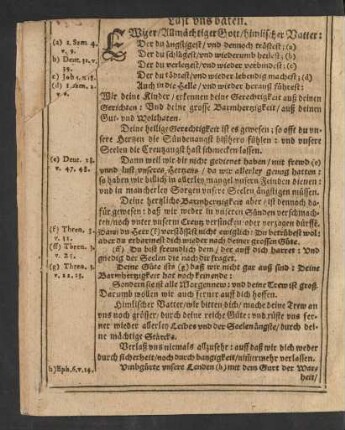 Lust vns baten.
EWiger/Allmächtiger Gott/himlischer Vatter:
(a) 1. Sam. 4. v. 9.
Der du ängstigest/vnd dennoch tröstest: (a)
(b) Deut. 32. v. 39.
Der du schlägest/vnd wiederumb heilest: (b)
Der du verletzest/vnd wieder verbindest: (c)
(c) Job 5. v. 18.
Der du tödtest/vnd wieder lebendig machest: (d)
(d) 1. Sam. 2. v. 6.
Auch in die Helle/vnd wieder herauß führest:
Wir deine Kinder/erkennen deine Gerechtigkeit auß deinen
Gerichten: Vnd deine grosse Barmhertzigkeit/auß deinen
Gut- vnd Wolthaten.
Deine heilige Gerechtigkeit ist es gewesen; so offt du vnsere
Hertzen die Sündenangst bißhero fühlen: vnd vnsere
Seelen die Creutzangst hast schmecken lassen.
(e) Deut. 28. v. 47. 48.
Dann weil wir dir nicht gedienet haben/mit frewd (e)
vnnd lust vnseres Hertzens/da wir allerley genug hatten:
so haben wir billich in allerley mangel vnsern Feinden dienen:
vnd in mancherley Sorgen vnsere Seelen ängstigen müssen.
Deine hertzliche Barmhertzigkeit aber/ist dennoch dafür
gewesen: daß wir weder in vnseren Sünden verschmachten/
noch vnter vnserm Creutz versincken oder verzagen dürffe.
(f) Thren. 3. v. 31.
Wann du Herr (f) verstössest nicht ewiglich: Du betrübest wol:
aber du erbarmest dich wieder nach deiner grossen Güte.
(ff) Thren. 3. v. 25.
(ff) Du bist freundlich dem/der auff dich harret: Vnd
gnedig der Seelen die nach dir fraget.
(g) Thren. 3. v. 22, 23.
Deine Güte ists (g) daß wir nicht gar auß sind: Deine
Barmhertzigkeit hat noch kein ende:
Sondern sie ist alle Morgen new: vnd deine Trew ist groß
Darumb wollen wir auch ferner auff dich hoffen.
Himlischer Vatter/wir bitten dich/mache deine Trew an
vns noch grösser/durch deine reiche Güte: vnd rüste vns ferner
wieder allerley Leides vnd der Seelen ängste/durch deine
mächtige Stärcke.
Verlaß vns niemals allzusehr: auff daß wir dich weder
durch sicherheit/noch durch bangigkeit/nimmermehr verlassen.
(h) Eph. 6. v. 14.
Vmbgürte vnsere Lenden (h) mit dem Gurt der Warheit/